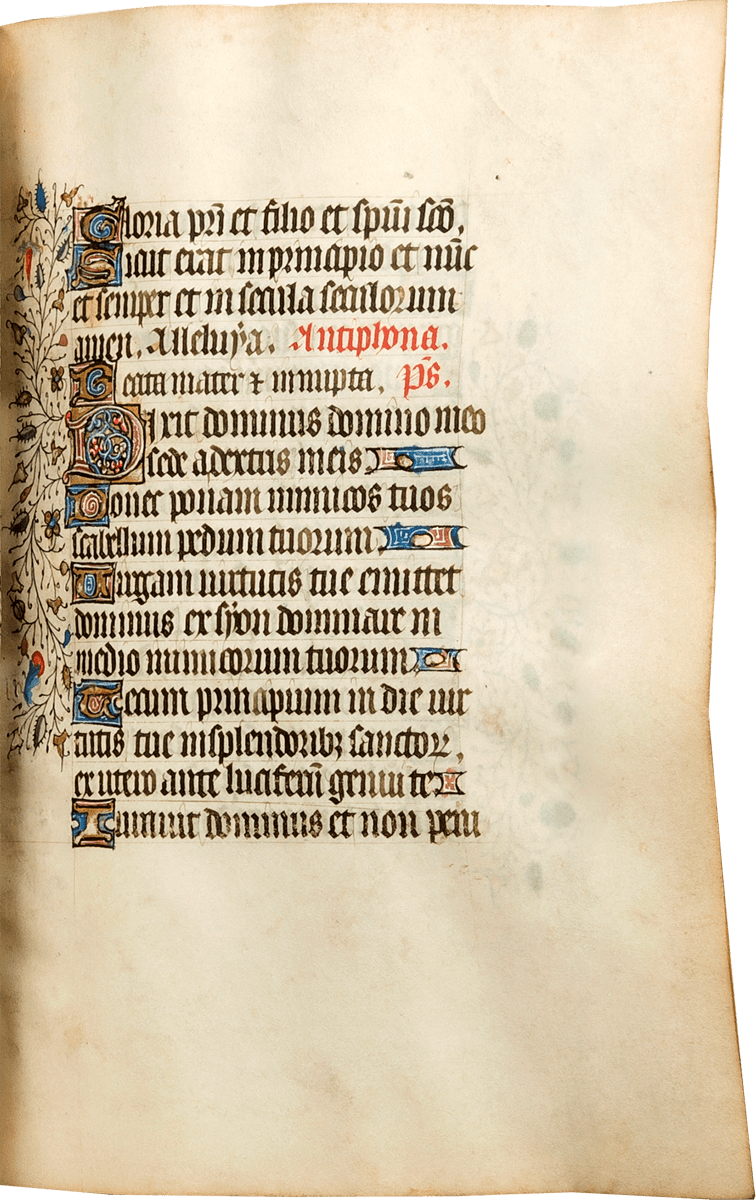 Gloria pri̅ et filio et spiu̅i sco̅,
Sicut erat in principio et nu̅c
et semper et in secula seculorum
amen, Alleluÿa. Antiphona.
Beata mater ⁊ innupta, ps̅.
Dixit dominus domino meo
sede adextris meis
Donec ponam inimicos tuos
scabellum pedum tuorum
Uirgam uirtutis tue emittet
dominus ex sÿon dominare in
medio inimicorum tuorum
Tecum principium in die uir
tutis tue insplendoribꝫ sanctorꝝ,
ex utero ante luciferu̅ genui te
Iurauit dominus et non peni